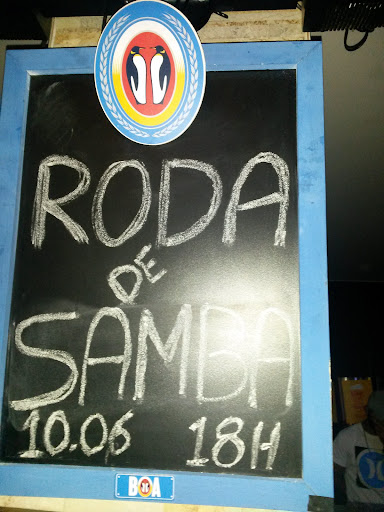 RODA
DE
SAMBA
10.06 18H
BOA